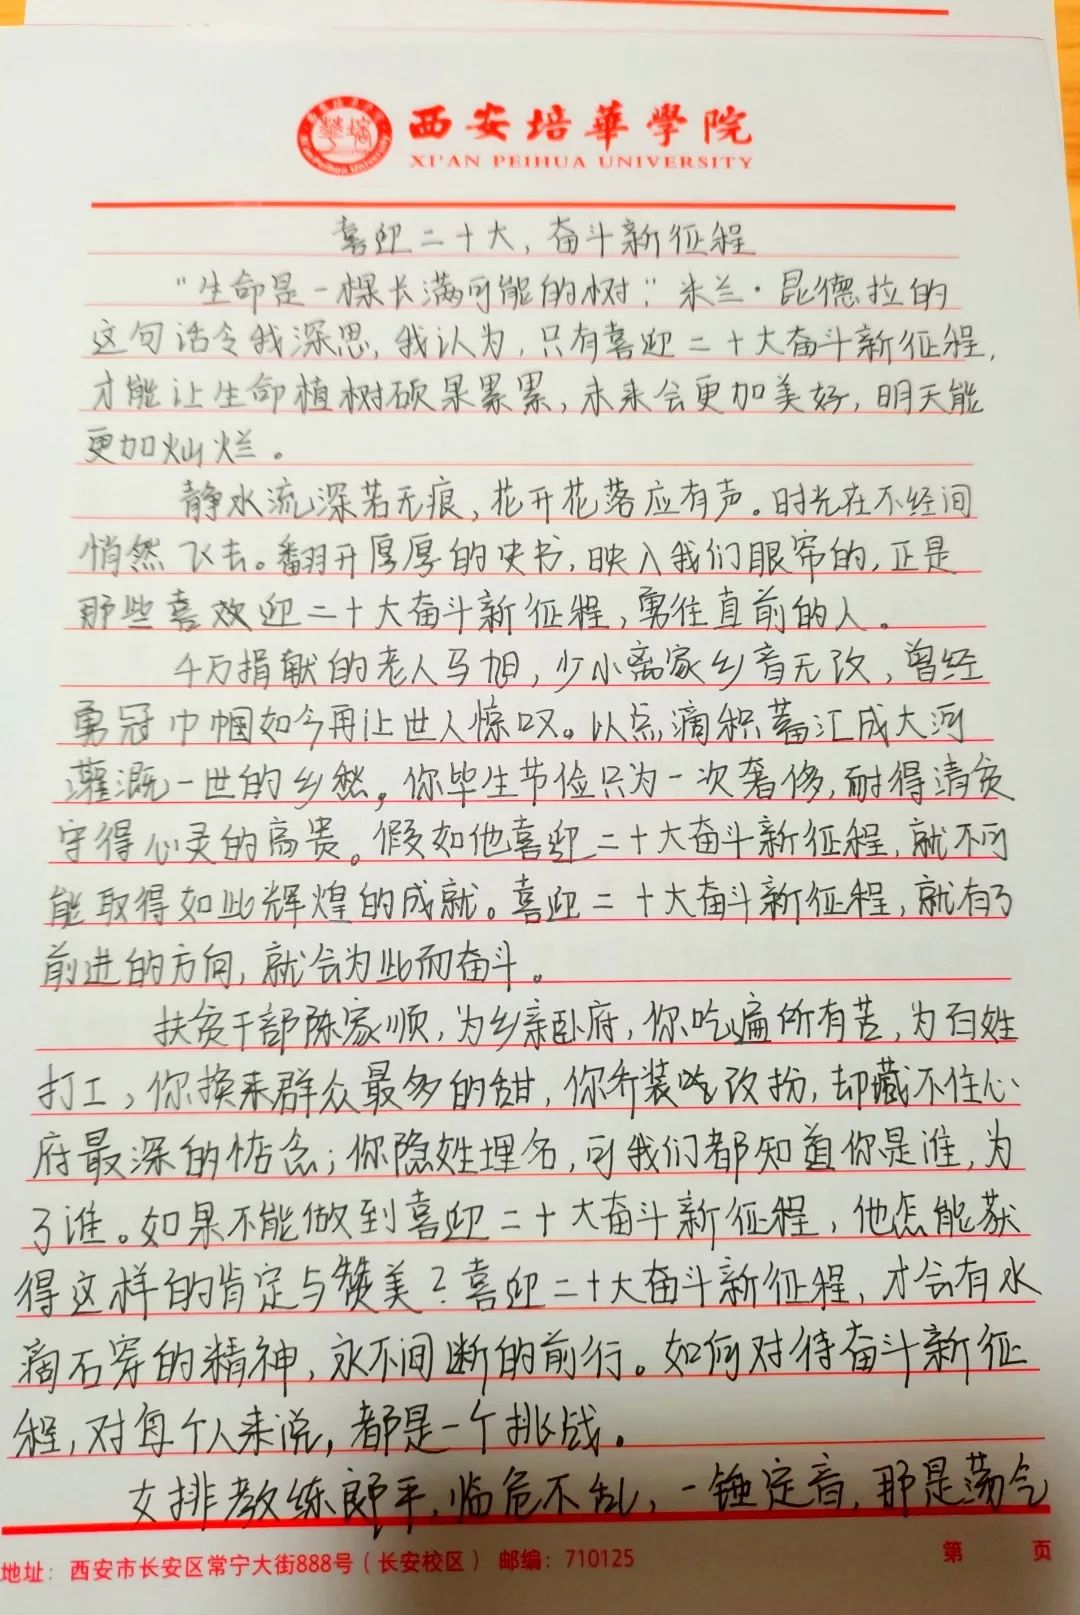 西安培華學院
XI'AN PEIHUA UNIVERSITY
喜迎二十大，奋斗新征程
“生命是一棵长满可能的树。”米兰·昆德拉的
这句话令我深思，我认为，只有喜迎二十大奋斗新征程，
才能让生命植树硕果累累，未来会更加美好，明天能
更加灿烂。
静水流深若无痕，花开花落应有声。时光在不经间
悄然飞去。翻开厚厚的史书，映入我们眼帘的，正是
那些喜欢迎二十大奋斗新征程，勇往直前的人。
千万捐献的老人马旭，少小离家乡音无改，曾经
勇冠巾帼如今再让世人惊叹。以点滴积蓄汇成大河
灌溉一世的乡愁，你毕生节俭只为一次奢侈，耐得清贫
守得心灵的高贵。假如他喜迎二十大奋斗新征程，就不可
能取得如此辉煌的成就。喜迎二十大奋斗新征程，就有了
前进的方向，就会为此而奋斗。
扶贫干部陈家顺，为乡亲卧府，你吃遍所有苦，为百姓
打工，你换来群众最多的甜，你乔装改扮，却藏不住心
府最深的惦念；你隐姓埋名，可我们都知道你是谁，为
了谁。如果不能做到喜迎二十大奋斗新征程，他怎能获
得这样的肯定与赞美？喜迎二十大奋斗新征程，才会有水
滴石穿的精神，永不间断的前行。如何对待奋斗新征
程，对每个人来说，都是一个挑战。
女排教练郎平，临危不乱，一锤定音，那是荡气
地址：西安市长安区常宁大街888号（长安校区） 邮编：710125
第 页